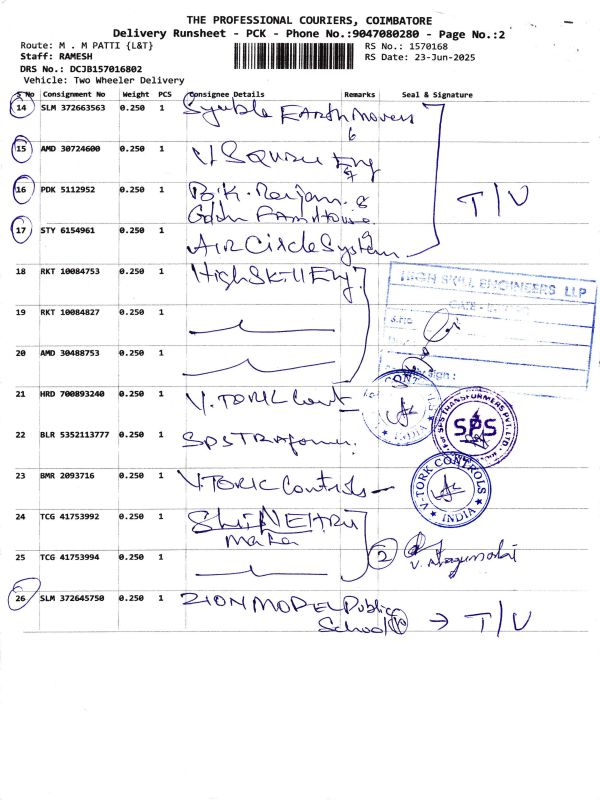 THE PROFESSIONAL COURIERS, COIMBATORE
Delivery Runsheet - PCK - Phone No.:9047080280 - Page No.:2
Route: M . M PATTI {L&T}
RS No.: 1570168
Staff: RAMESH
RS Date: 23-Jun-2025
DRS No.: DCJB157016802
Vehicle: Two Wheeler Delivery
S No Consignment No Weight PCS Consignee Details Remarks Seal & Signature
14 SLM 372663563 0.250 1 Syuble EARTH Movers
15 AMD 30724600 0.250 1 V SQUARE Eng
16 PDK 5112952 0.250 1 B.K.
FARM House T/V
17 STY 6154961 0.250 1 AIR Circle System
18 RKT 10084753 0.250 1 High Skill Eng
HIGH SKILL ENGINEERS LLP
19 RKT 10084827 0.250 1
20 AMD 30488753 0.250 1
Sign :
21 HRD 700893240 0.250 1 V. TORK Cont
INDIA
For SPS TRANSFORMERS PVT. LTD.
SPS
22 BLR 5352113777 0.250 1 SPS TRAformer
23 BMR 2093716 0.250 1 V.TORK Controls
V-TORK CONTROLS
INDIA
24 TCG 41753992 0.250 1 Shri NEHRU
Maha
25 TCG 41753994 0.250 1
2
26 SLM 372645750 0.250 1 ZION MODEL Public
School → T/V